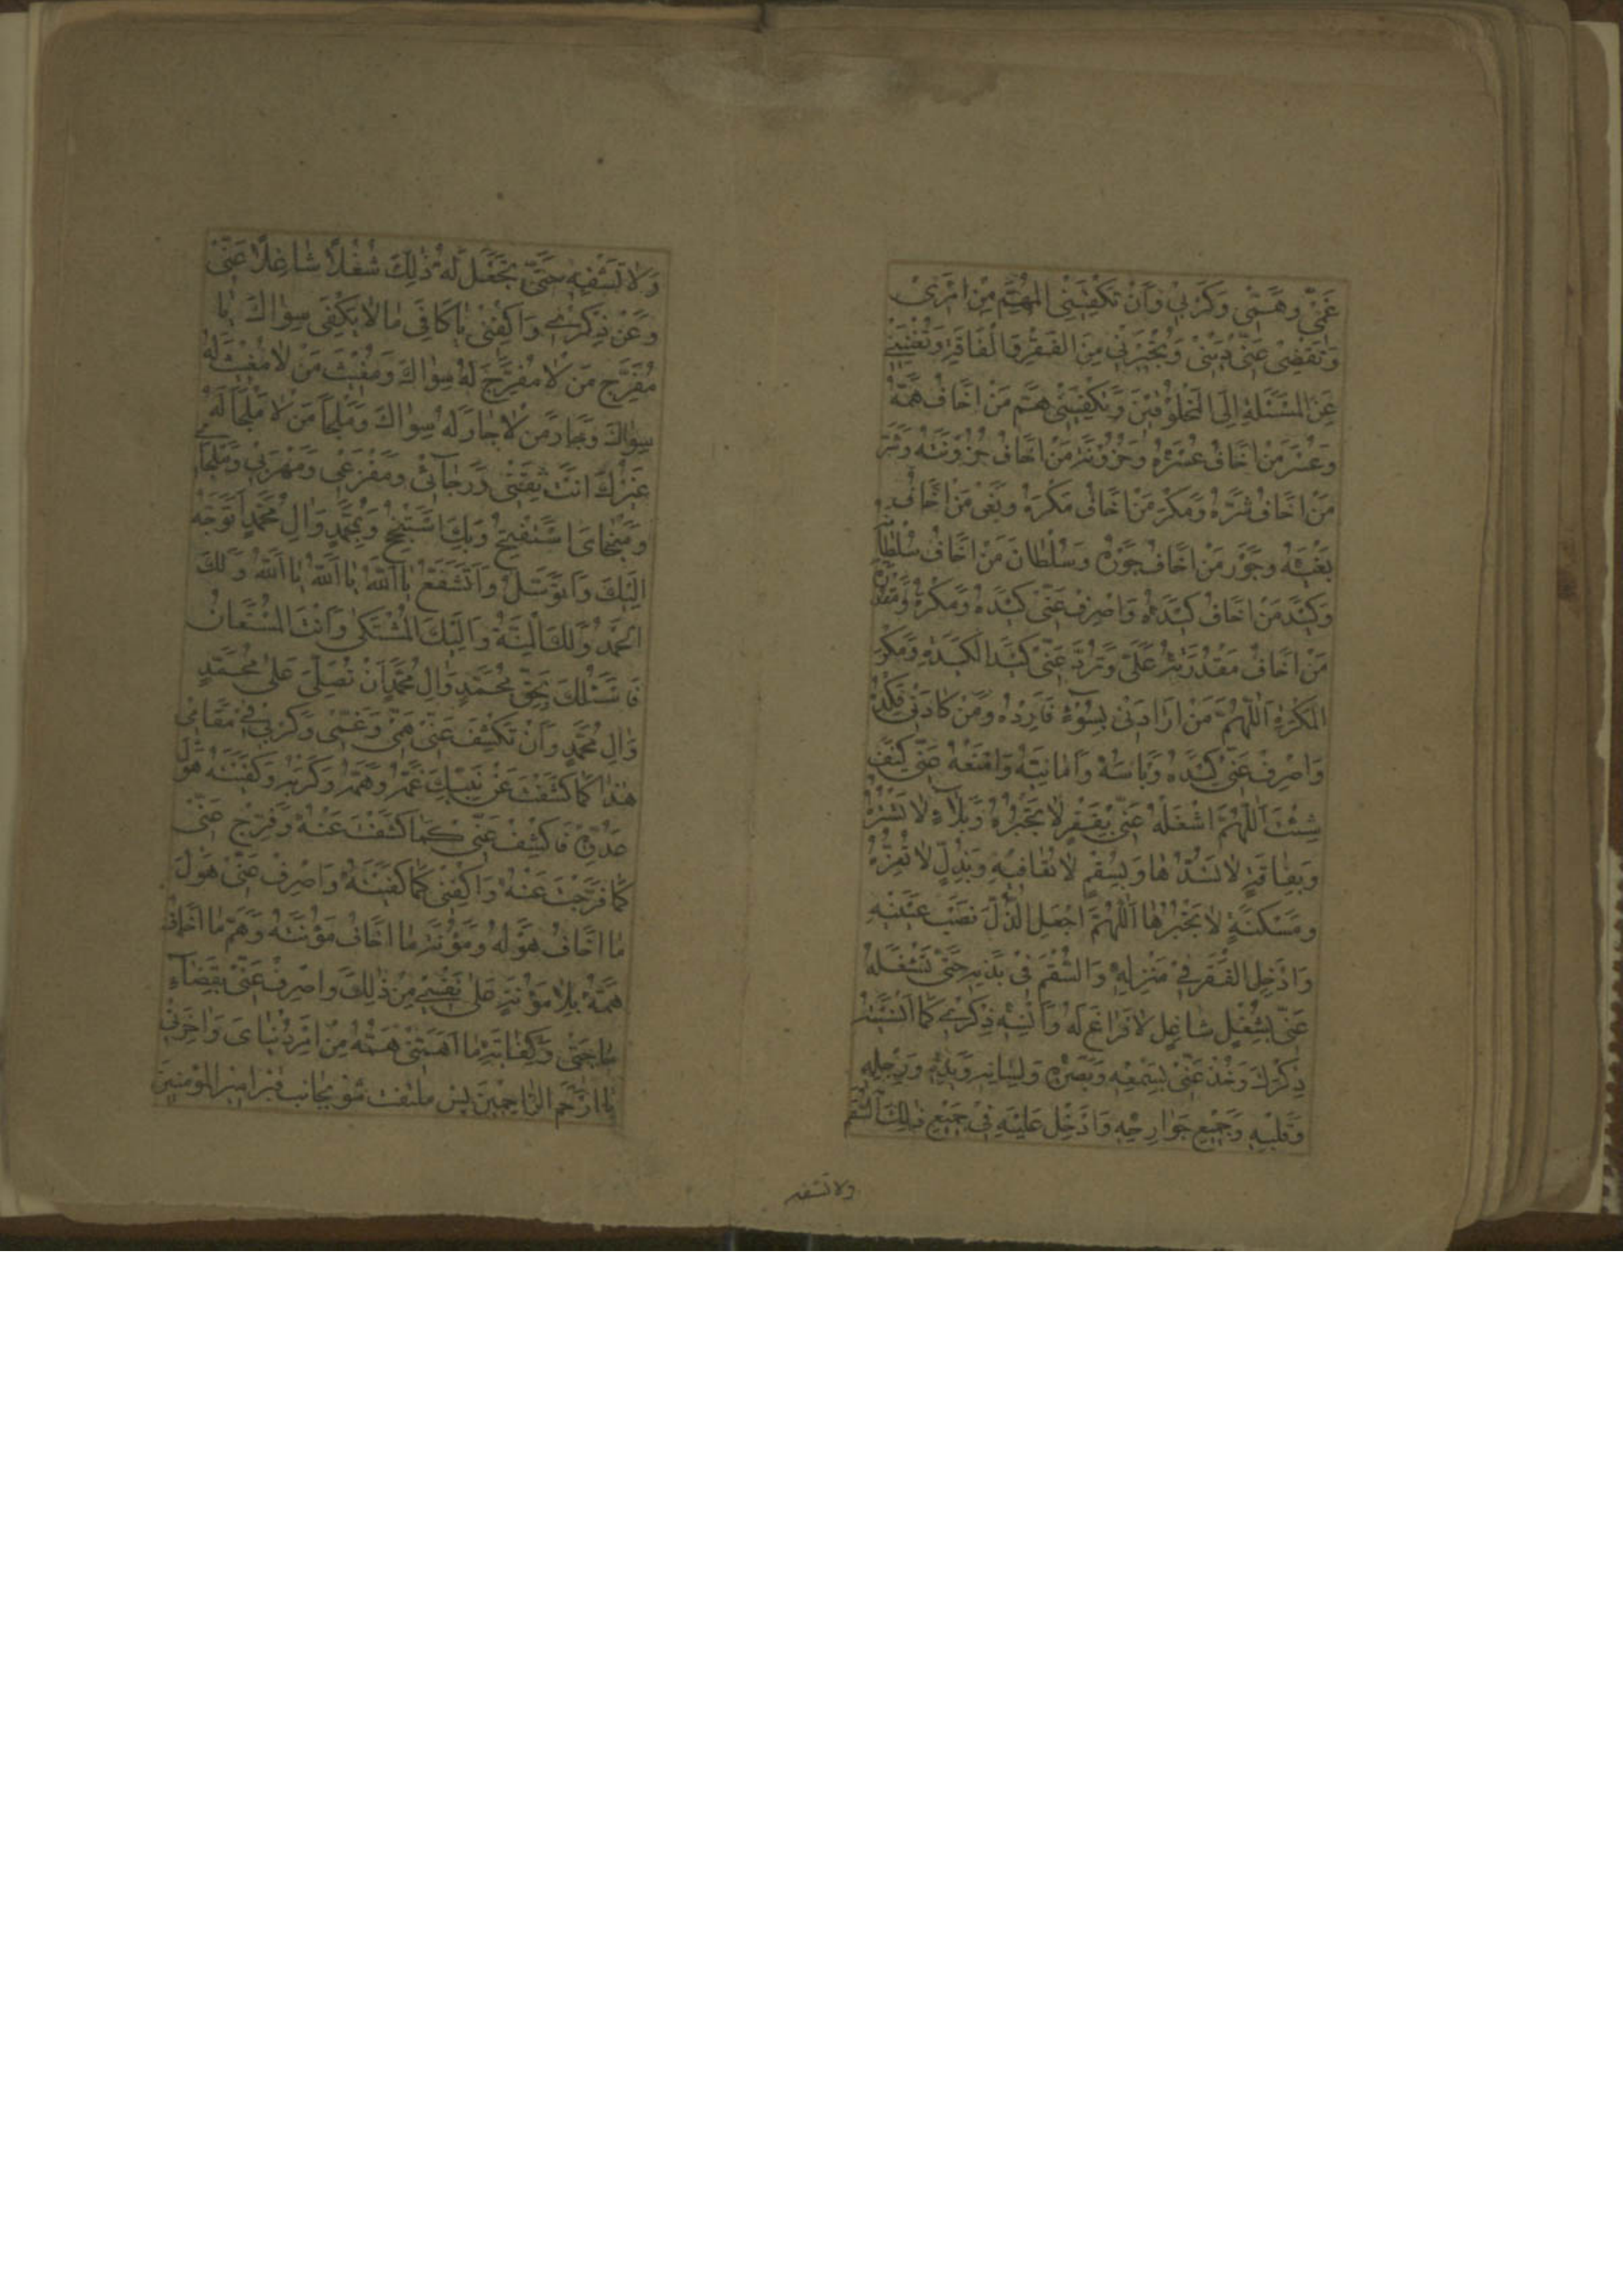 غَمّى وَهَمّى وَكَرْبى وَاَنْ تَكْفِيَنِى الْمُهِمَّ مِنْ اَمْرى
وَتَقْضِىَ عَنّى دَيْنى وَتُجْبِرَنى مِنَ الْفَقْرِ وَالْفاقَةِ وَتُغْنِيَنى
عَنِ الْمَسْئَلَةِ اِلَى الْمَخْلُوقينَ وَتَكْفِيَنى هَمَّ مَنْ اَخافُ هَمَّهُ
وَعُسْرَ مَنْ اَخافُ عُسْرَهُ وَحُزُونَةَ مَنْ اَخافُ حُزُونَتَهُ وَشَرَّ
مَنْ اَخافُ شَرَّهُ وَمَكْرَ مَنْ اَخافُ مَكْرَهُ وَبَغْىَ مَنْ اَخافُ
بَغْيَهُ وَجَوْرَ مَنْ اَخافُ جَوْرَهُ وَسُلْطانَ مَنْ اَخافُ سُلْطانَهُ
وَكَيْدَ مَنْ اَخافُ كَيْدَهُ وَاصْرِفْ عَنّى كَيْدَهُ وَمَكْرَهُ وَمَقْدُرَةَ
مَنْ اَخافُ مَقْدُرَتَهُ عَلَىَّ وَتَرُدَّ عَنّى كَيْدَ الْكَيَدَةِ وَمَكْرَ
الْمَكَرَةِ اَللّهُمَّ مَنْ اَرادَنى بِسُوءٍ فَاَرِدْهُ وَمَنْ كادَنى فَكِدْهُ
وَاصْرِفْ عَنّى كَيْدَهُ وَبَاْسَهُ وَاَمانِيَّهُ وَامْنَعْهُ عَنّى كَيْفَ
شِئْتَ اَللّهُمَّ اشْغَلْهُ عَنّى بِفَقْرٍ لا تَجْبُرُهُ وَبَلاءٍ لا تَسْتُرُهُ
وَبِفاقَةٍ لا تَسُدُّها وَبِسُقْمٍ لا تُعافيهِ وَبِذُلٍّ لا تُعِزُّهُ
وَمَسْكَنَةٍ لا تَجْبُرُها اَللّهُمَّ اجْعَلِ الذُّلَّ نَصْبَ عَيْنَيْهِ
وَاَدْخِلِ الْفَقْرَ فى مَنْزِلِهِ وَالسُّقْمَ فى بَدَنِهِ حَتّى تَشْغَلَهُ
عَنّى بِشُغْلٍ شاغِلٍ لا فَراغَ لَهُ وَاَنْسِهِ ذِكْرى كَما اَنْسَيْتَهُ
ذِكْرَكَ وَخُذْ عَنّى بِسَمْعِهِ وَبَصَرِهِ وَلِسانِهِ وَيَدِهِ وَرِجْلِهِ
وَقَلْبِهِ وَجَميعِ جَوارِحِهِ وَاَدْخِلْ عَلَيْهِ فى جَميعِ ذلِكَ السُّقْمَ
ولا تشفه
وَلا تَشْفِهِ حَتّى تَجْعَلَ لَهُ ذلِكَ شُغْلاً شاغِلاً عَنّى
وَعَنْ ذِكْرى وَاكْفِنى يا كافِىَ ما لا يَكْفى سِواكَ يا
مُفَرِّجَ مَنْ لا مُفَرِّجَ لَهُ سِواكَ وَمُغيثَ مَنْ لا مُغيثَ لَهُ
سِواكَ وَجارَ مَنْ لا جارَ لَهُ سِواكَ وَمَلْجَاَ مَنْ لا مَلْجَاَ لَهُ
غَيْرُكَ اَنْتَ ثِقَتى وَرَجائى وَمَفْزَعى وَمَهْرَبى وَمَلْجَاى
وَمَنْجاىَ اَسْتَفْتِحُ وَبِكَ اَسْتَنْجِحُ وَبِمُحَمَّدٍ وَالِ مُحَمَّدٍ اَتَوَجَّهُ
اِلَيْكَ وَاَتَوَسَّلُ وَاَتَشَفَّعُ يا اَللّهُ يا اَللّهُ يا اَللّهُ وَلَكَ
الْحَمْدُ وَلَكَ الْمِنَّةُ وَاِلَيْكَ الْمُشْتَكى وَاَنْتَ الْمُسْتَعانُ
فَاَسْئَلُكَ بِحَقِّ مُحَمَّدٍ وَالِ مُحَمَّدٍ اَنْ تُصَلِّىَ عَلى مُحَمَّدٍ
وَالِ مُحَمَّدٍ وَاَنْ تَكْشِفَ عَنّى هَمّى وَغَمّى وَكَرْبى فى مَقامى
هذا كَما كَشَفْتَ عَنْ نَبِيِّكَ غَمَّهُ وَهَمَّهُ وَكَرْبَهُ وَكَفَيْتَهُ هَوْلَ
عَدُوِّهِ فَاكْشِفْ عَنّى كَما كَشَفْتَ عَنْهُ وَفَرِّجْ عَنّى
كَما فَرَّجْتَ عَنْهُ وَاكْفِنى كَما كَفَيْتَهُ وَاصْرِفْ عَنّى هَوْلَ
ما اَخافُ هَوْلَهُ وَمَؤُنَةَ ما اَخافُ مَؤُنَتَهُ وَهَمَّ ما اَخافُ
هَمَّهُ بِلا مَؤُنَةٍ عَلى نَفْسى مِنْ ذلِكَ وَاصْرِفْ عَنّى بِقَضاءِ
حاجَتى وَكِفايَةِ ما اَهَمَّنى هَمُّهُ مِنْ اَمْرِ دُنْياىَ وَاخِرَتى
يا اَرْحَمَ الرّاحِمينَ پس ملتفت شو بجانب قبر امير المؤمنين